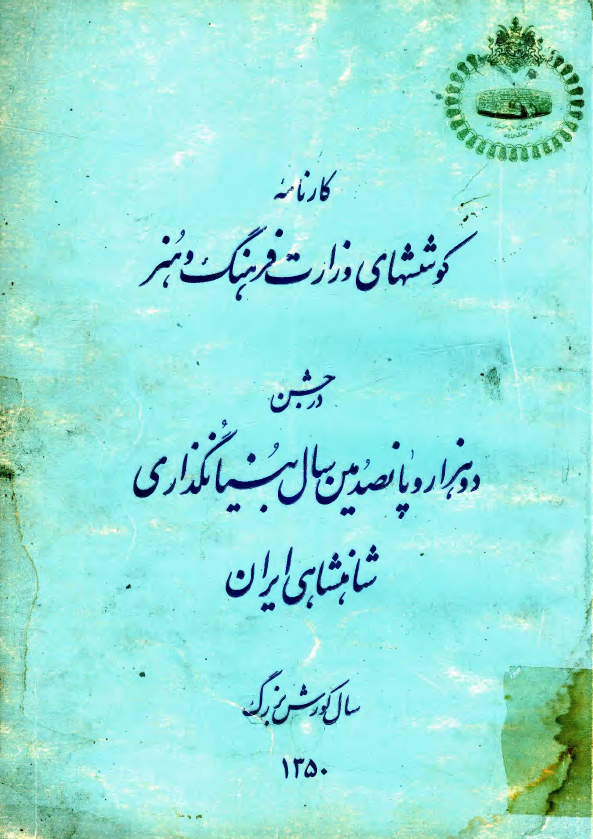 کارنامه
کوششهای وزارت فرهنگ و هنر
در جشن
دو هزار و پانصدمین سال بنیانگذاری
شاهنشاهی ایران
سال کورش بزرگ
۱۳۵۰